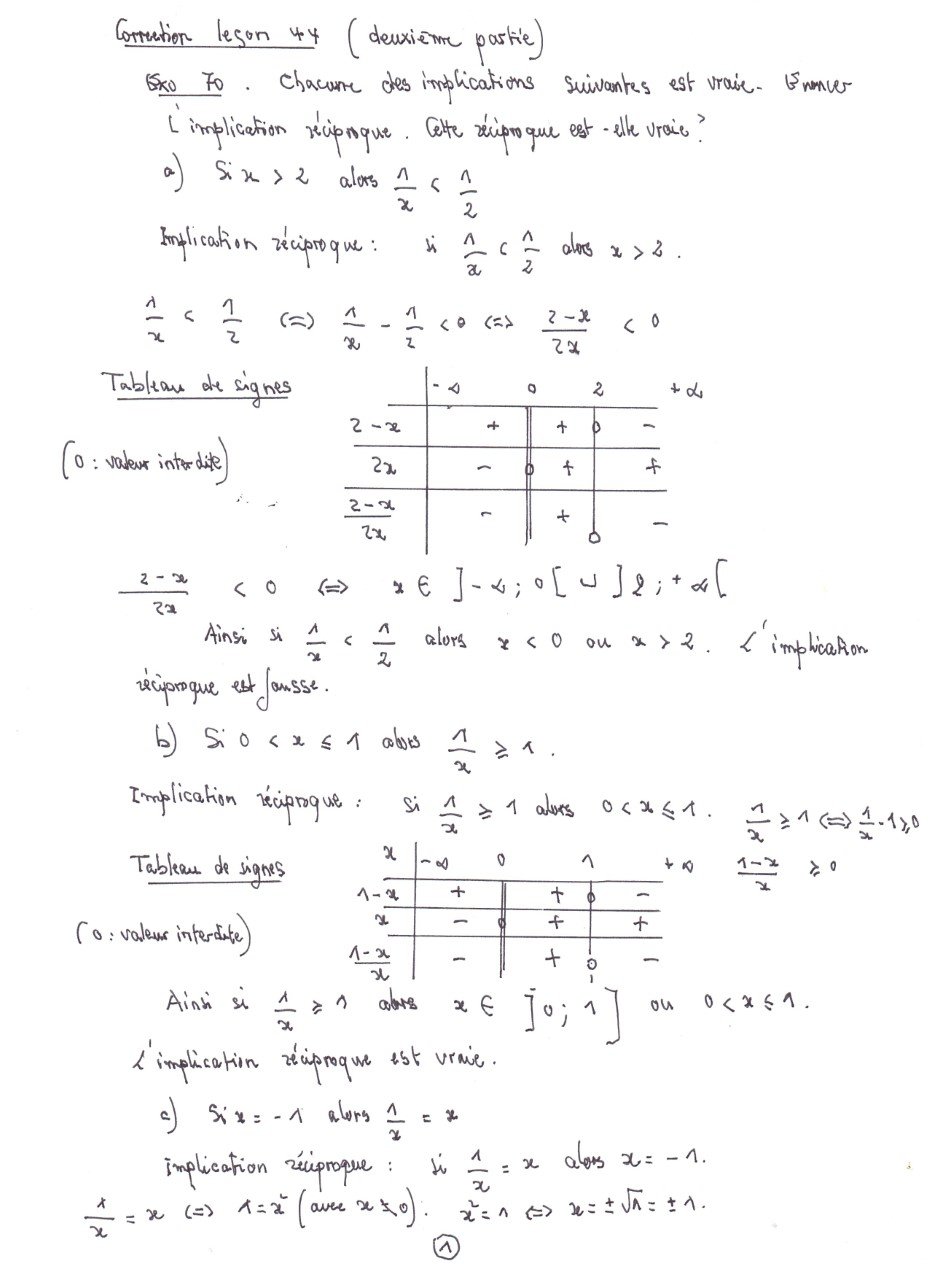 Correction leçon 44 (deuxième partie)
Exo 70. Chacune des implications suivantes est vraie. Enoncer
L'implication réciproque. Cette réciproque est-elle vraie?
a) Si x > 2 alors 1/x < 1/2
Implication réciproque : si 1/x < 1/2 alors x > 2.
1/x < 1/2 <=> 1/x - 1/2 < 0 <=> (2-x)/2x < 0
Tableau de signes
-∞ 0 2 +∞
2-x + + 0 -
(0 : valeur interdite) 2x - 0 + +
(2-x)/2x - + 0 -
(2-x)/2x < 0 <=> x ∈ ]-∞; 0[ ∪ ]2; +∞[
Ainsi si 1/x < 1/2 alors x < 0 ou x > 2. L'implication
réciproque est fausse.
b) Si 0 < x ≤ 1 alors 1/x ≥ 1.
Implication réciproque : si 1/x ≥ 1 alors 0 < x ≤ 1. 1/x ≥ 1 <=> 1/x - 1 ≥ 0
Tableau de signes x -∞ 0 1 +∞ (1-x)/x ≥ 0
1-x + + 0 -
(0 : valeur interdite) x - 0 + +
(1-x)/x - + 0 -
Ainsi si 1/x ≥ 1 alors x ∈ ]0; 1] ou 0 < x ≤ 1.
L'implication réciproque est vraie.
c) Si x = -1 alors 1/x = x
implication réciproque : si 1/x = x alors x = -1.
1/x = x <=> 1 = x² (avec x ≠ 0). x² = 1 <=> x = ±√1 = ±1.
1